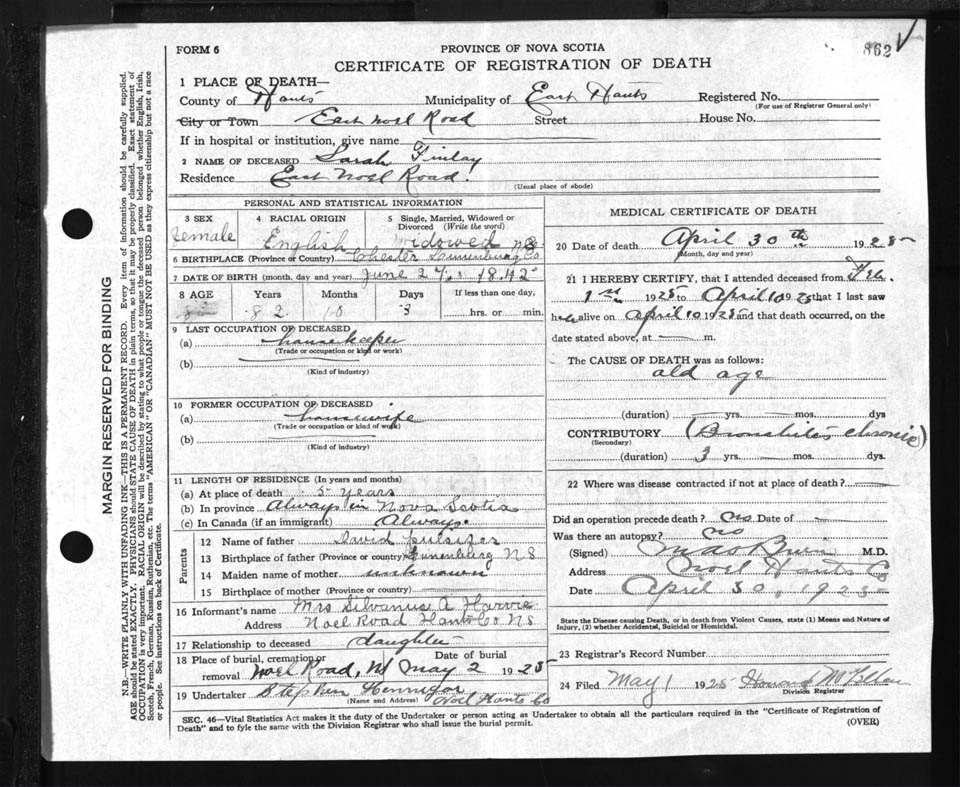 862 V
FORM 6
PROVINCE OF NOVA SCOTIA
CERTIFICATE OF REGISTRATION OF DEATH
1 PLACE OF DEATH—
County of Hants Municipality of East Hants Registered No.
(For use of Registrar General only)
City or Town East Noel Road Street House No.
If in hospital or institution, give name
2 NAME OF DECEASED Sarah Finlay
Residence East Noel Road.
(Usual place of abode)
MARGIN RESERVED FOR BINDING
N.B—WRITE PLAINLY WITH UNFADING INK—THIS IS A PERMANENT RECORD. Every item of information should be carefully supplied.
AGE should be stated EXACTLY. PHYSICIANS should STATE CAUSE OF DEATH in plain terms, so that it may be properly classified. Exact statement of
OCCUPATION is very important. RACIAL ORIGIN will be described by stating to what people or tongue the deceased person belonged whether English, Irish,
Scotch, French, German, Russian, Ruthenian, etc. The terms "AMERICAN" OR "CANADIAN" MUST NOT BE USED as they express citizenship but not a race
or people. See instructions on back of Certificate.
PERSONAL AND STATISTICAL INFORMATION
3 SEX 4 RACIAL ORIGIN 5 Single, Married, Widowed or
Divorced (Write the word)
Female English Widowed
6 BIRTHPLACE (Province or Country) Chester Lunenburg Co NS
7 DATE OF BIRTH (month, day and year) June 27 1842
8 AGE Years Months Days If less than one day,
82 10 3 hrs. or min.
9 LAST OCCUPATION OF DECEASED
(a) housekeeper
(Trade or occupation or kind or work)
(b)
(Kind of industry)
10 FORMER OCCUPATION OF DECEASED
(a) housewife
(Trade or occupation or kind of work)
(b)
(Kind of industry)
11 LENGTH OF RESIDENCE (In years and months)
(a) At place of death 5 years
(b) In province Always in Nova Scotia
(c) In Canada (if an immigrant) Always.
Parents
12 Name of father David Pulsifer
13 Birthplace of father (Province or country) Lunenburg N S
14 Maiden name of mother unknown
15 Birthplace of mother (Province or country)
16 Informant's name Mrs Silvanus A Harvie
Address Noel Road Hants Co N S
17 Relationship to deceased daughter
18 Place of burial, cremation or Date of burial
removal Noel Road, N May 2 1925
19 Undertaker Stephen Hennigar
(Name and Address) Noel Hants Co
MEDICAL CERTIFICATE OF DEATH
20 Date of death April 30th 1925
(Month, day and year)
21 I HEREBY CERTIFY, that I attended deceased from Feb.
1st 1925 to April 10 1925 that I last saw
her alive on April 10 1925 and that death occurred, on the
date stated above, at m.
The CAUSE OF DEATH was as follows:
old age
(duration) yrs. mos. dys
CONTRIBUTORY (Bronchites chronic)
(Secondary)
(duration) 3 yrs. mos. dys.
22 Where was disease contracted if not at place of death?
Did an operation precede death? no Date of
Was there an autopsy? no
(Signed) M.D.
Address Noel Hants Co
Date April 30, 1925
State the Disease causing Death, or in death from Violent Causes, state (1) Means and Nature of
Injury, (2) whether Accidental, Suicidal or Homicidal.
23 Registrar's Record Number
24 Filed May 1 1925 Howard
Division Registrar
SEC. 46—Vital Statistics Act makes it the duty of the Undertaker or person acting as Undertaker to obtain all the particulars required in the "Certificate of Registration of
Death" and to fyle the same with the Division Registrar who shall issue the burial permit. (OVER)